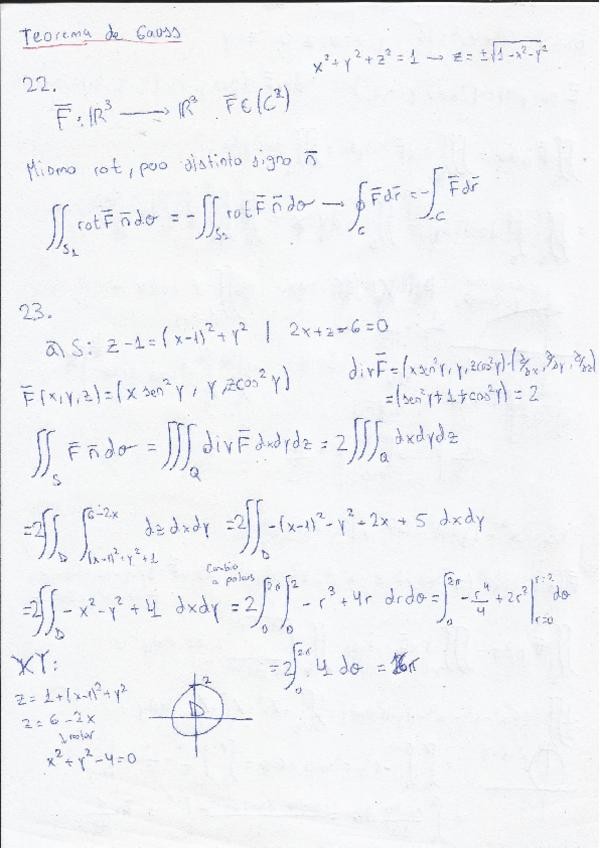 Teorema de Gauss
x² + y² + z² = 1 → z = ±√(1-x²-y²)
22.
F̄: ℝ³ → ℝ³ F̄ ∈ (C²)
Mismo rot, pero distinto signo n̄
∬_{S₁} rot F̄ n̄ dσ = -∬_{S₂} rot F̄ n̄ dσ → ∮_C F̄ dr̄ = -∫_{-C} F̄ dr̄
23.
a) S: z-1 = (x-1)² + y² | 2x+z-6=0
F̄(x,y,z) = (x sen²y, y, z cos²y)
div F̄ = (x sen²y, y, z cos²y)·(∂/∂x, ∂/∂y, ∂/∂z)
= (sen²y + 1 + cos²y) = 2
∬_S F̄ n̄ dσ = ∭_Q div F̄ dxdydz = 2∭_Q dxdydz
= 2∬_D ∫_{(x-1)²+y²+1}^{6-2x} dz dxdy = 2∬_D -(x-1)² - y² - 2x + 5 dxdy
Cambio a polares
= 2∬_D -x² - y² + 4 dxdy = 2∫_0^{2π} ∫_0^2 -r³ + 4r dr dθ = ∫_0^{2π} -r⁴/4 + 2r² |_{r=0}^{r=2} dθ
= 2∫_0^{2π} 4 dθ = 16π
XY:
z = 1 + (x-1)² + y²
z = 6 - 2x
x² + y² - 4 = 0
2
D